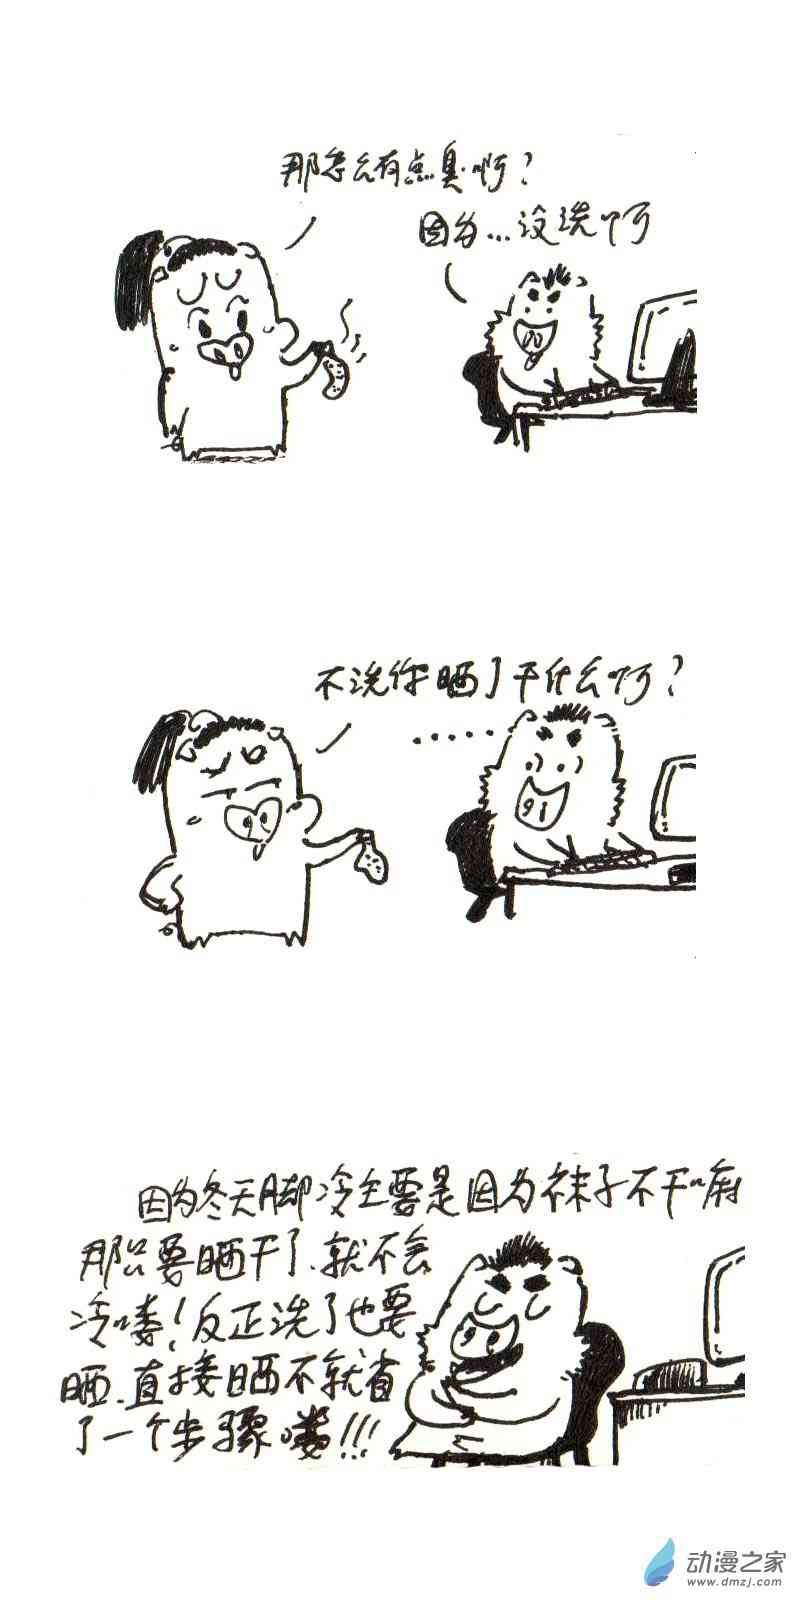 那怎么有点臭啊？
因为…没洗啊
不洗你晒了干什么啊？
……
因为冬天脚冷主要是因为袜子不干嘛
那只要晒干了、就不会
冷喽！反正洗了也要
晒、直接晒不就省
了一个步骤喽！！！
动漫之家
www.dmzj.com